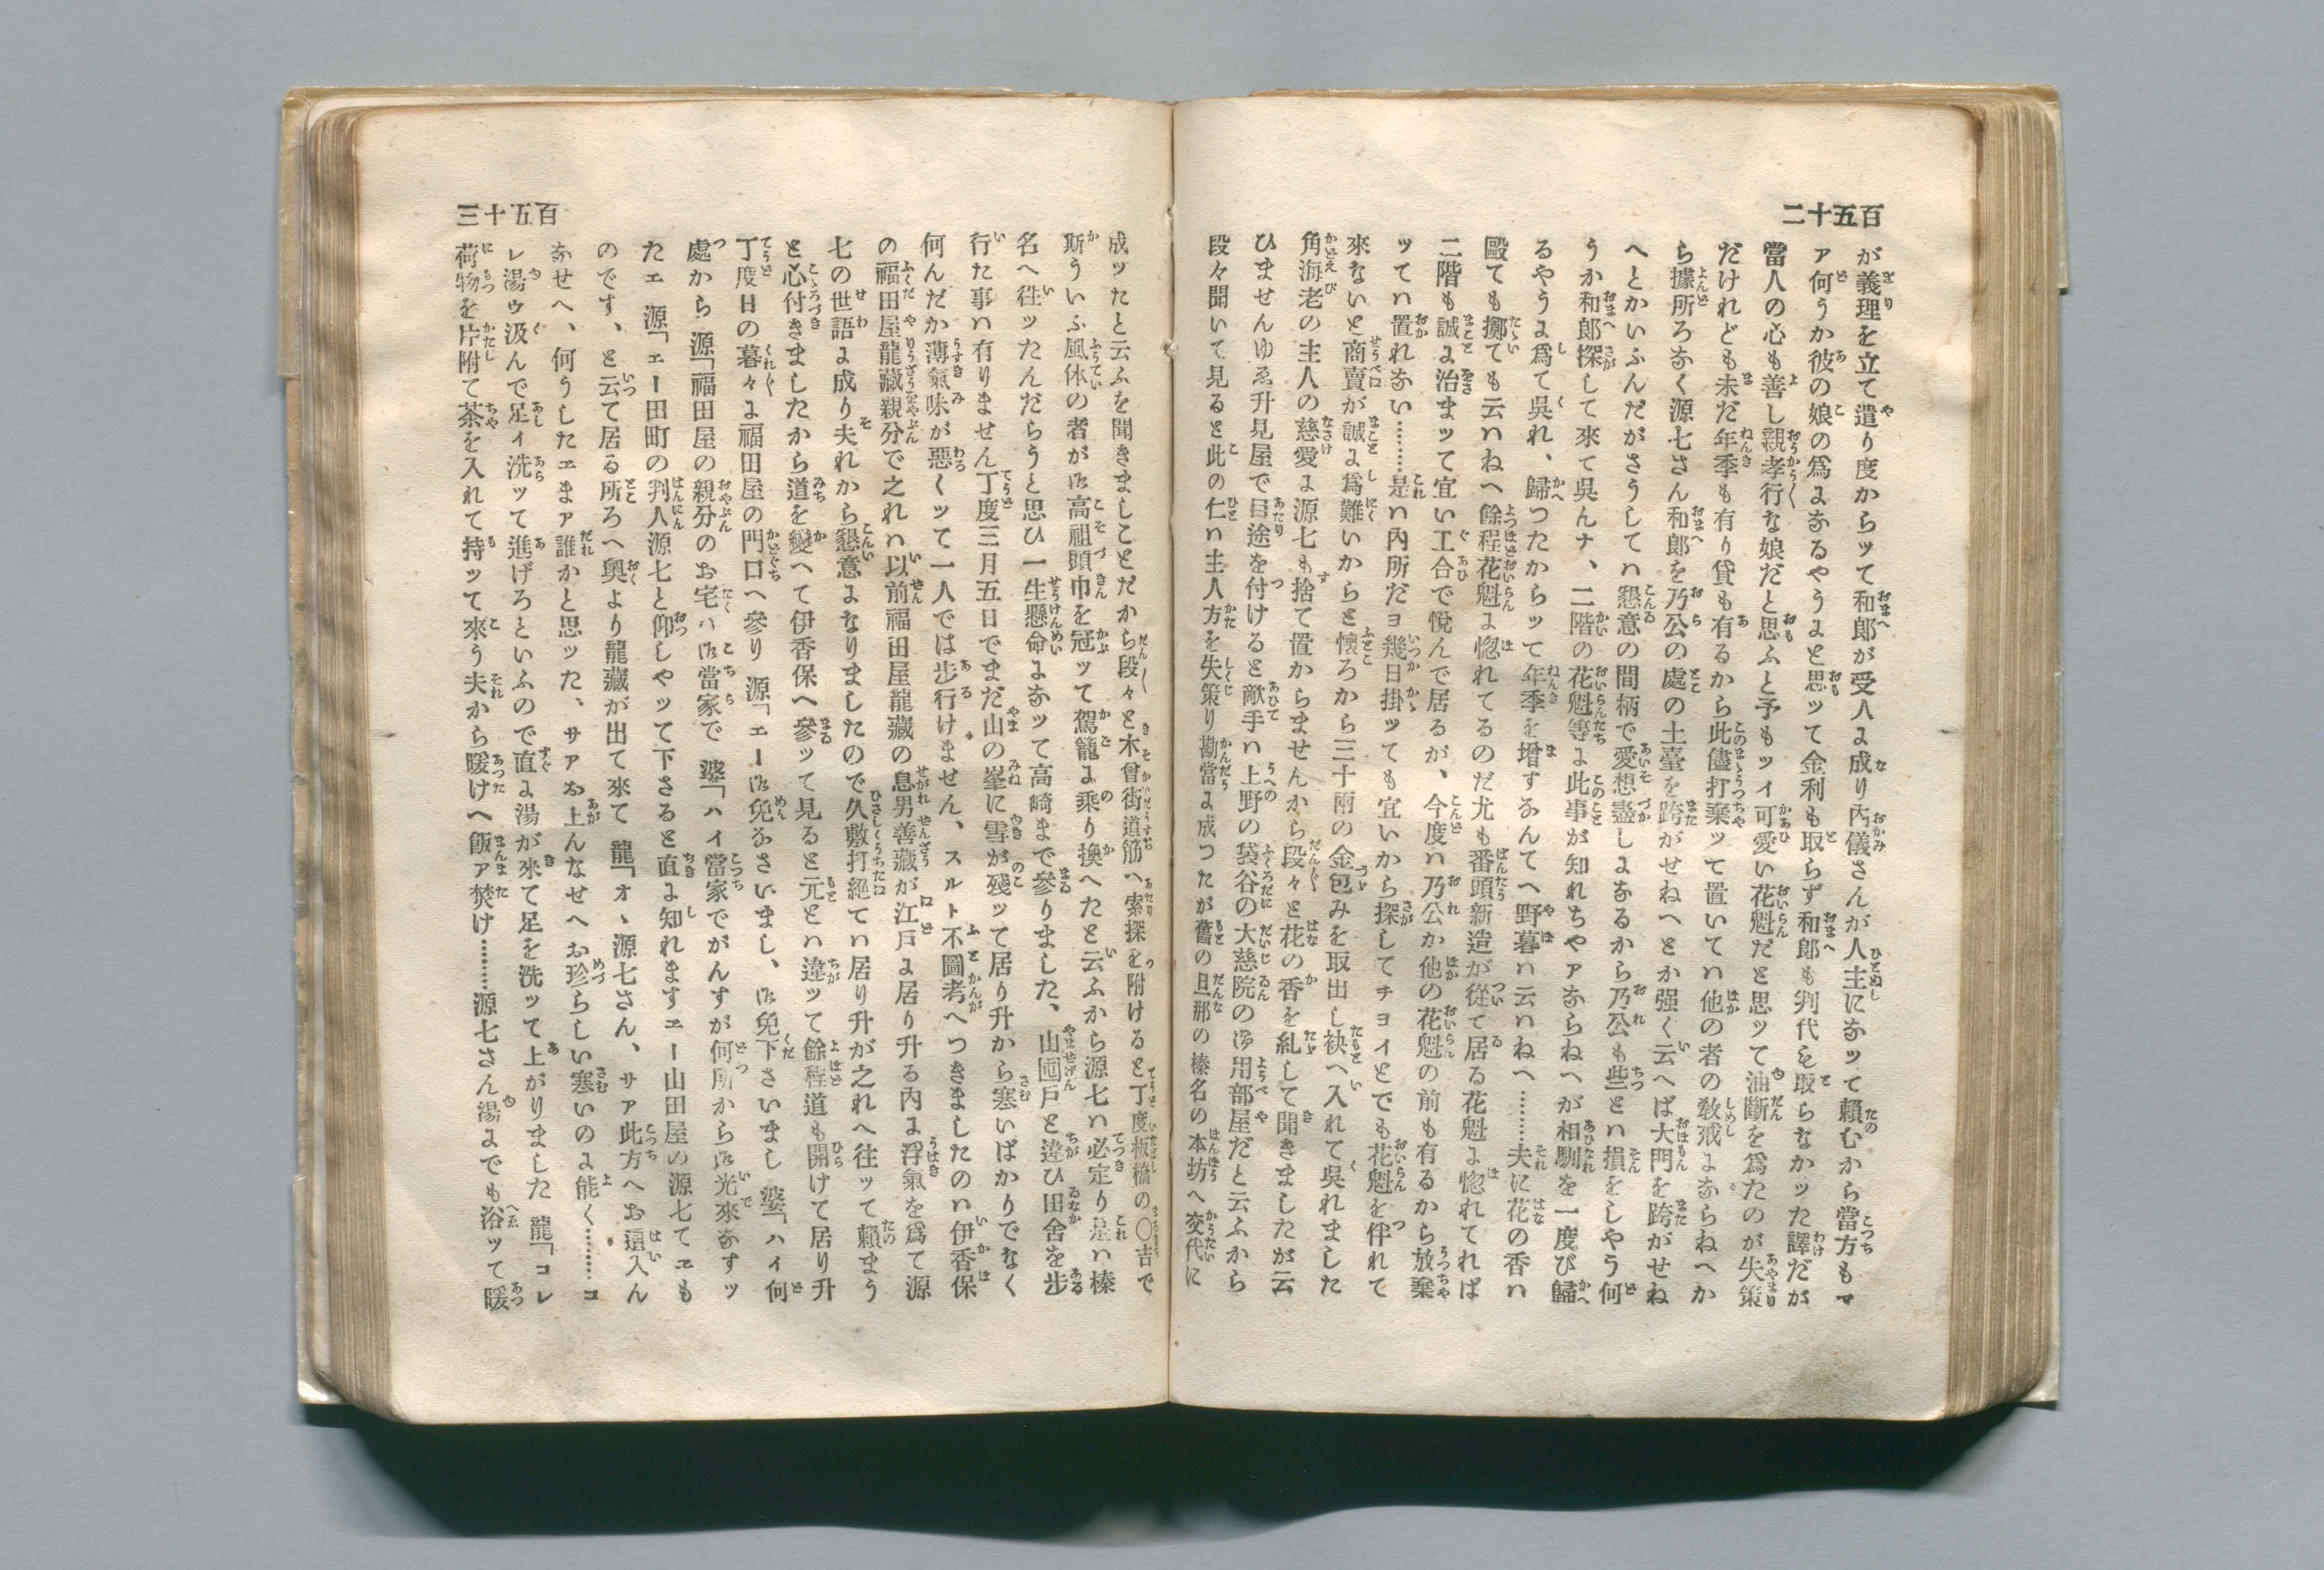 百五十二
が義理を立て遣り度からッて和郎が受人よ成り內儀さんが人主になッて賴むから當方もマ
ァ何うか彼の娘の爲よなるやうよと思ッて金利も取らず和郎も判代も取らなかッた譯だが
當人の心も善し親孝行な娘だと思ふと予もツイ可愛い花魁だと思ッて油斷を爲たのが失策
だけれども未だ年季も有り貸も有るから此儘打棄ッて置いてハ他の者の敎戒よならねへか
ら據所ろなく源七さん和郎を乃公の處の土臺を跨がせねへとか强く云へば大門を跨がせね
へとかいふんだがさうしてハ懇意の間柄で愛想盡しよなるから乃公も些とハ損をしやう何
うか和郎探して來て吳んナ、二階の花魁等よ此事が知れちやァならねへが相馴を一度び歸
るやうよ爲て吳れ、歸つたからッて年季を增すなんてへ野暮ハ云ハねへ………夫に花の香ハ
毆ても擲ても云ハねへ餘程花魁よ惚れてるのだ尤も番頭新造が從て居る花魁よ惚れてれば
二階も誠よ治まッて宜い工合で悅んで居るが、今度ハ乃公か他の花魁の前も有るから放棄
ッてハ置れない………是ハ內所だヨ幾日掛ッても宜いから探してチョイとでも花魁を伴れて
來ないと商賣が誠よ爲難いからと懷ろから三十兩の金包みを取出し袂へ入れて吳れました
角海老の主人の慈愛よ源七も捨て置からませんから段々と花の香を糺して聞きましたが云
ひませんゆゑ升見屋で目途を付けると敵手ハ上野の袋谷の大慈院の御用部屋だと云ふから
段々聞いて見ると此の仁ハ主人方を失策り勘當よ成つたが舊の旦那の榛名の本坊へ交代に
百五十三
成ッたと云ふを聞きましことだから段々と木曾街道筋へ索探を附けると丁度板橋の〇吉で
斯ういふ風体の者が御高祖頭巾を冠ッて駕籠よ乘り換へたと云ふから源七ハ必定り是ハ榛
名へ徃ッたんだらうと思ひ一生懸命よなッて高崎まで參りました、山䴡戶と違ひ田舍を步
行た事ハ有りません丁度三月五日でまだ山の峯に雪が殘ッて居り升から寒いばかりでなく
何んだか薄氣味が惡くッて一人では步行けません、スルト不圖考へつきましたのハ伊香保
の福田屋龍藏親分で之れハ以前福田屋龍藏の息男善藏が江戶よ居り升る內よ浮氣を爲て源
七の世話よ成り夫れから懇意よなりましたので久敷打絕てハ居り升が之れへ往ッて賴まう
と心付きましたから道を變へて伊香保へ參ッて見ると元とハ違ッて餘程道も開けて居り升
丁度日の暮々よ福田屋の門口へ參り 源「エー御免なさいまし、御免下さいまし 婆「ハイ何
處から 源「福田屋の親分のお宅ハ御當家で 婆「ハイ當家でがんすが何所から御光來なすッ
たエ 源「エー田町の判人源七と仰しやッて下さると直よ知れますエー山田屋の源七てエも
のです、と云て居る所ろへ奧より龍藏が出て來て 龍「オヽ源七さん、サァ此方へお這入ん
なせへ、何うしたエまァ誰かと思ッた、サァお上んなせへお珍らしい寒いのよ能く………コ
レ湯ゥ汲んで足ィ洗ッて進げろといふので直よ湯が來て足を洗ッて上がりました 龍「コレ
荷物を片附て茶を入れて持ッて來う夫から暖けへ飯ァ焚け………源七さん湯よでも浴ッて暖